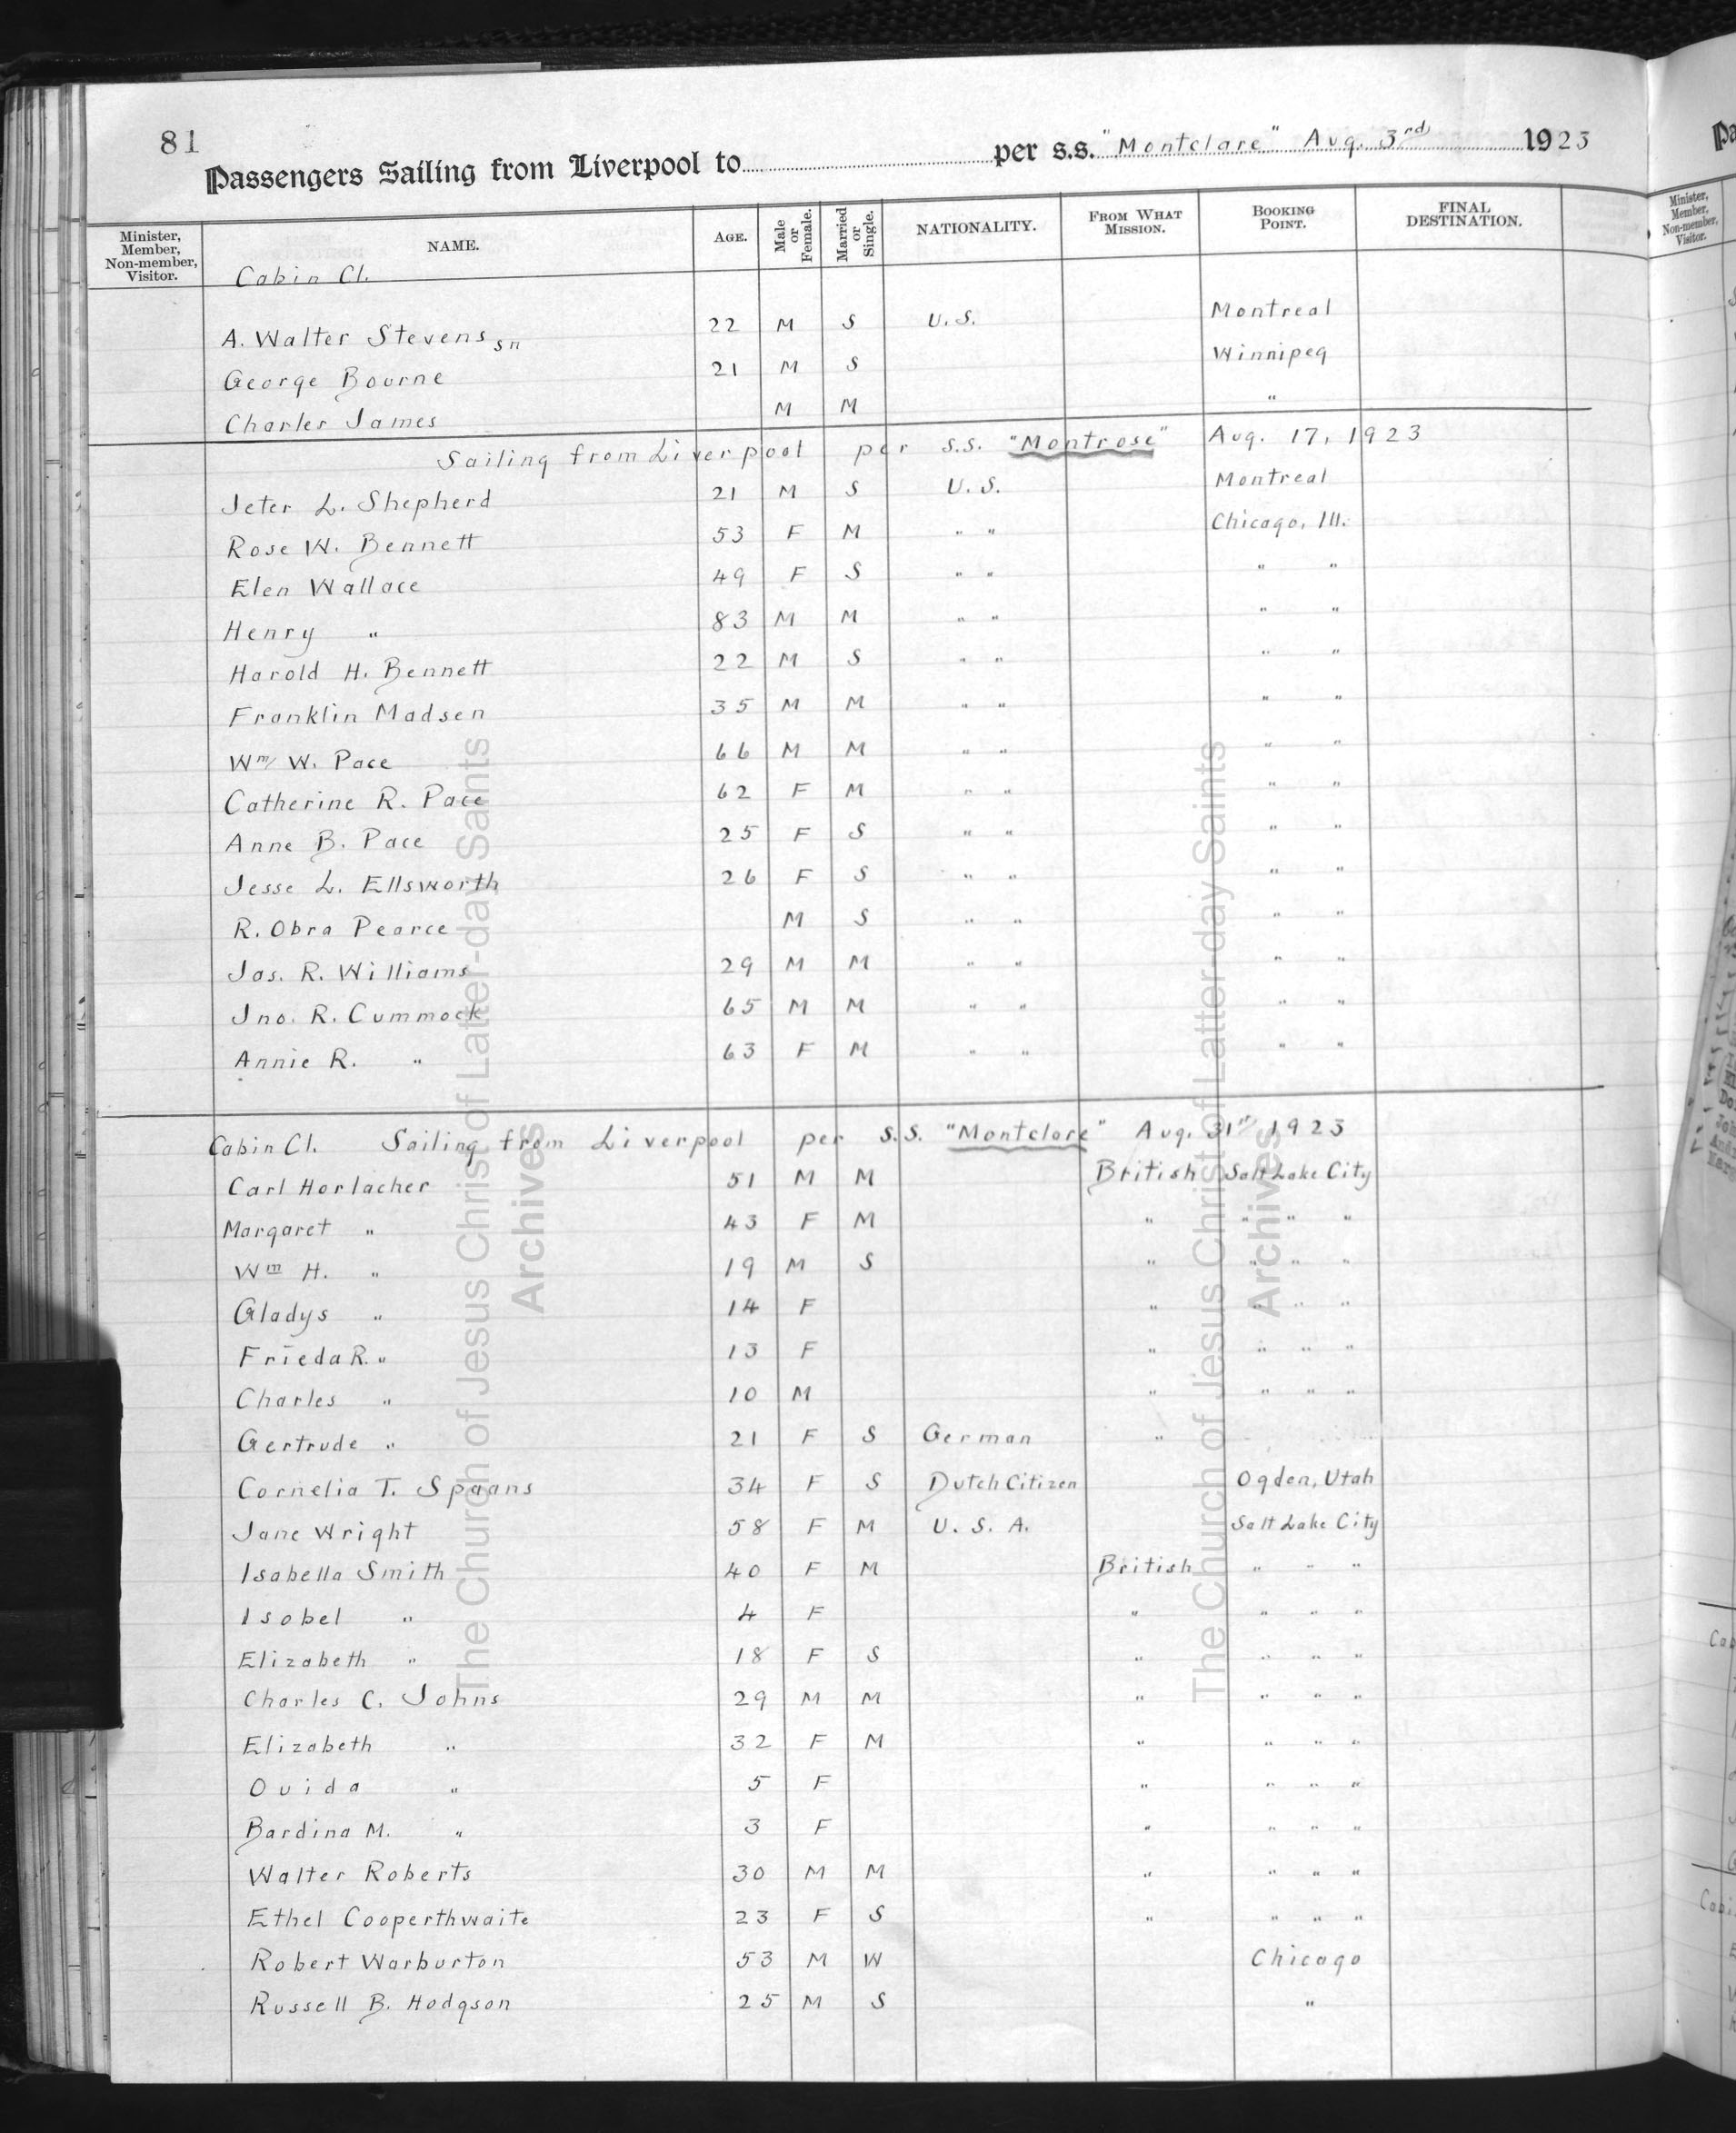 81
Passengers Sailing from Liverpool to per s.s. "Montclare" Aug. 3rd 1923
Minister, Member, Non-member, Visitor. NAME. AGE. Male or Female. Married or Single. NATIONALITY. FROM WHAT MISSION. BOOKING POINT. FINAL DESTINATION.
Cabin Cl.
A. Walter Stevens sn 22 M S U.S. Montreal
George Bourne 21 M S Winnipeg
Charles James M M "
Sailing from Liverpool per s.s. "Montrose" Aug. 17, 1923
Jeter L. Shepherd 21 M S U.S. Montreal
Rose W. Bennett 53 F M " " Chicago, Ill.
Elen Wallace 49 F S " " " "
Henry " 83 M M " " " "
Harold H. Bennett 22 M S " " " "
Franklin Madsen 35 M M " " " "
Wm W. Pace 66 M M " " " "
Catherine R. Pace 62 F M " " " "
Anne B. Pace 25 F S " " " "
Jesse L. Ellsworth 26 F S " " " "
R. Obra Pearce M S " " " "
Jos. R. Williams 29 M M " " " "
Jno. R. Cummock 65 M M " " " "
Annie R. " 63 F M " " " "
Cabin Cl. Sailing from Liverpool per S.S. "Montclare" Aug. 31st 1923
Carl Horlacher 51 M M British Salt Lake City
Margaret " 43 F M " " " "
Wm H. " 19 M S " " " "
Gladys " 14 F " " " "
Frieda R. " 13 F " " " "
Charles " 10 M " " " "
Gertrude " 21 F S German "
Cornelia T. Spaans 34 F S Dutch Citizen Ogden, Utah
Jane Wright 58 F M U.S.A. Salt Lake City
Isabella Smith 40 F M British " " "
Isobel " 4 F " " " "
Elizabeth " 18 F S " " " "
Charles C. Johns 29 M M " " " "
Elizabeth " 32 F M " " " "
Ouida " 5 F " " " "
Bardina M. " 3 F " " " "
Walter Roberts 30 M M " " " "
Ethel Cooperthwaite 23 F S " " " "
Robert Warburton 53 M W Chicago
Russell B. Hodgson 25 M S "
The Church of Jesus Christ of Latter-day Saints
Archives
The Church of Jesus Christ of Latter-day Saints
Archives
Minister, Member, Non-member, Visitor.